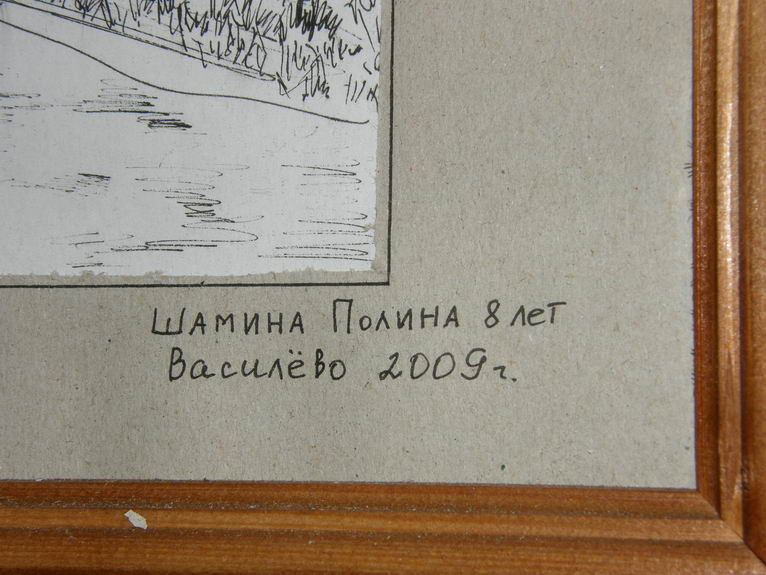 Шамина Полина 8 лет
Василёво 2009г.